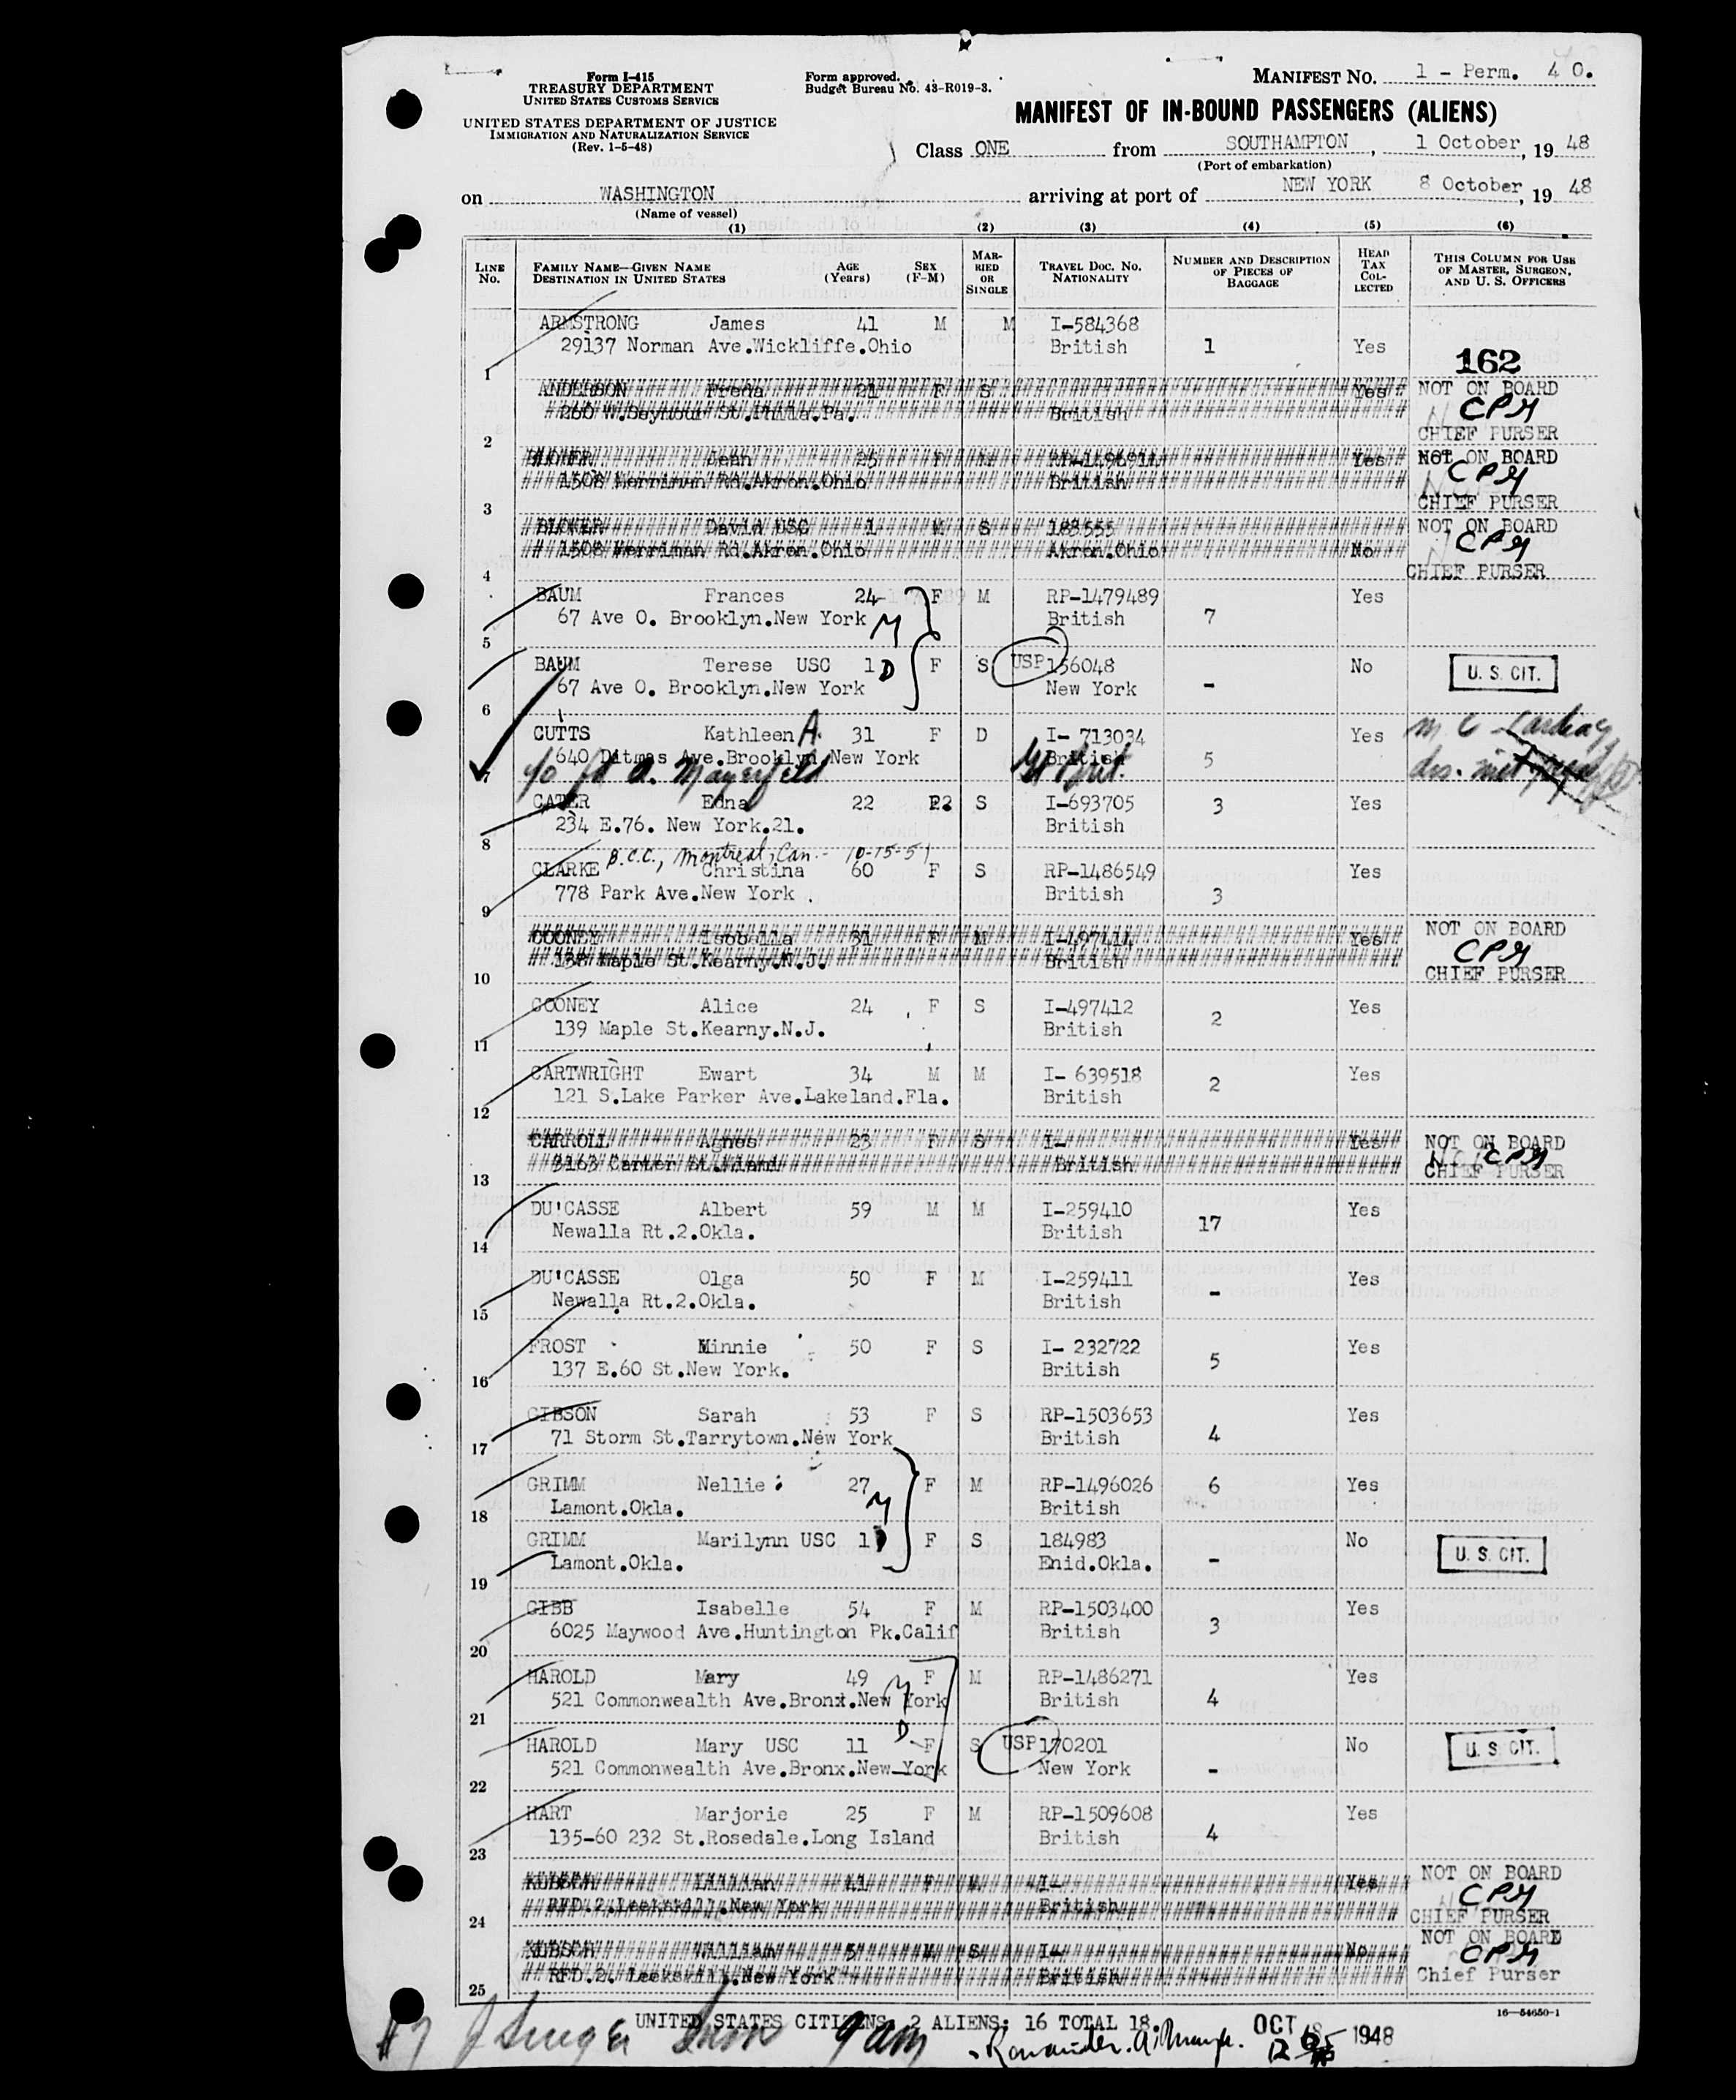 Form I-415
TREASURY DEPARTMENT
UNITED STATES CUSTOMS SERVICE
UNITED STATES DEPARTMENT OF JUSTICE
IMMIGRATION AND NATURALIZATION SERVICE
(Rev. 1-5-48)
Form approved.
Budget Bureau No. 43-R019-3.
MANIFEST NO. 1 - Perm. 40.
MANIFEST OF IN-BOUND PASSENGERS (ALIENS)
Class ONE from SOUTHAMPTON, 1 October, 19 48
(Port of embarkation)
on WASHINGTON arriving at port of NEW YORK 8 October, 19 48
(Name of vessel)
(1) (2) (3) (4) (5) (6)
LINE No. FAMILY NAME—GIVEN NAME DESTINATION IN UNITED STATES AGE (Years) SEX (F-M) MARRIED OR SINGLE TRAVEL DOC. NO. NATIONALITY NUMBER AND DESCRIPTION OF PIECES OF BAGGAGE HEAD TAX COLLECTED THIS COLUMN FOR USE OF MASTER, SURGEON, AND U. S. OFFICERS
ARMSTRONG James 41 M M I-584368
29137 Norman Ave.Wickliffe.Ohio British 1 Yes
1 162
ANDERSON Freda 21 F S Yes NOT ON BOARD
260 W.Seymour St.Phila.Pa. British CPM
2 CHIEF PURSER
BLOWER Jean 25 F M RP-1496914 Yes NOT ON BOARD
1508 Merriman Rd.Akron.Ohio British CPM
3 CHIEF PURSER
BLOWER David USC 1 M S 183555 NOT ON BOARD
1508 Merriman Rd.Akron.Ohio Akron.Ohio No CPM
4 CHIEF PURSER
BAUM Frances 24 F M RP-1479489 Yes
67 Ave O. Brooklyn.New York M British 7
5
BAUM Terese USC 1 D F S USP 156048 No U. S. CIT.
67 Ave O. Brooklyn.New York New York -
6
CUTTS Kathleen A. 31 F D I- 713034 Yes
640 Ditmas Ave.Brooklyn.New York British 5
7
CATER Edna 22 F S I-693705 3 Yes
234 E.76. New York.21. British
8
B.C.C., Montreal, Can. - 10-15-51
CLARKE Christina 60 F S RP-1486549 Yes
778 Park Ave.New York . British 3
9
COONEY Isobella 31 F M I-497414 Yes NOT ON BOARD
138 Maple St.Kearny.N.J. British CPM
10 CHIEF PURSER
COONEY Alice 24 F S I-497412 Yes
139 Maple St.Kearny.N.J. British 2
11
CARTWRIGHT Ewart 34 M M I- 639518 Yes
121 S.Lake Parker Ave.Lakeland.Fla. British 2
12
CARROLL Agnes 23 F S I- Yes NOT ON BOARD
3163 Carter St.Miami British CPM
13 CHIEF PURSER
DU'CASSE Albert 59 M M I-259410 Yes
Newalla Rt.2.Okla. British 17
14
DU'CASSE Olga 50 F M I-259411 Yes
Newalla Rt.2.Okla. British -
15
FROST Minnie 50 F S I- 232722 Yes
137 E.60 St.New York. British 5
16
GIBSON Sarah 53 F S RP-1503653 Yes
71 Storm St.Tarrytown.New York British 4
17
GRIMM Nellie 27 F M RP-1496026 6 Yes
Lamont.Okla. M British
18
GRIMM Marilynn USC 1 D F S 184983 No U. S. CIT.
Lamont.Okla. Enid.Okla. -
19
GIBB Isabelle 54 F M RP-1503400 Yes
6025 Maywood Ave.Huntington Pk.Calif British 3
20
HAROLD Mary 49 M F M RP-1486271 Yes
521 Commonwealth Ave.Bronx.New York British 4
21
HAROLD Mary USC 11 D F S USP 170201 No U. S. CIT.
521 Commonwealth Ave.Bronx.New York New York -
22
HART Marjorie 25 F M RP-1509608 Yes
135-60 232 St.Rosedale.Long Island British 4
23
KUBSCH Lillian 41 F M I- Yes NOT ON BOARD
RFD.2.Leekskill.New York British CPM
24 CHIEF PURSER
KUBSCH William 5 M S I- No NOT ON BOARD
RFD.2. Leekskill.New York British CPM
25 Chief Purser
16—54650-1
UNITED STATES CITIZENS 2 ALIENS: 16 TOTAL 18. OCT 8 1948
9 am